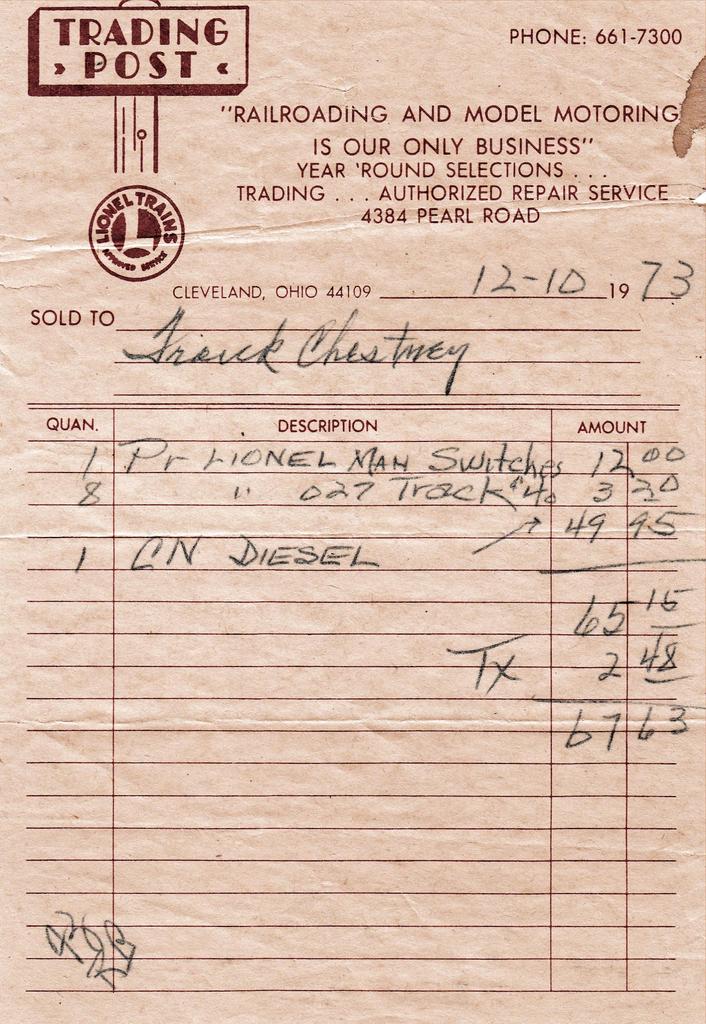 TRADING
› POST ‹
PHONE: 661-7300
"RAILROADING AND MODEL MOTORING
IS OUR ONLY BUSINESS"
YEAR 'ROUND SELECTIONS . . .
TRADING . . . AUTHORIZED REPAIR SERVICE
4384 PEARL ROAD
LIONEL TRAINS
L
APPROVED SERVICE
CLEVELAND, OHIO 44109 12-10 19 73
SOLD TO Frank Chestney
QUAN. DESCRIPTION AMOUNT
1 Pr LIONEL MAN Switches 12 00
8 " 027 Track 40 3 20
49 95
1 CN DIESEL
65 15
Tx 2 48
67 63